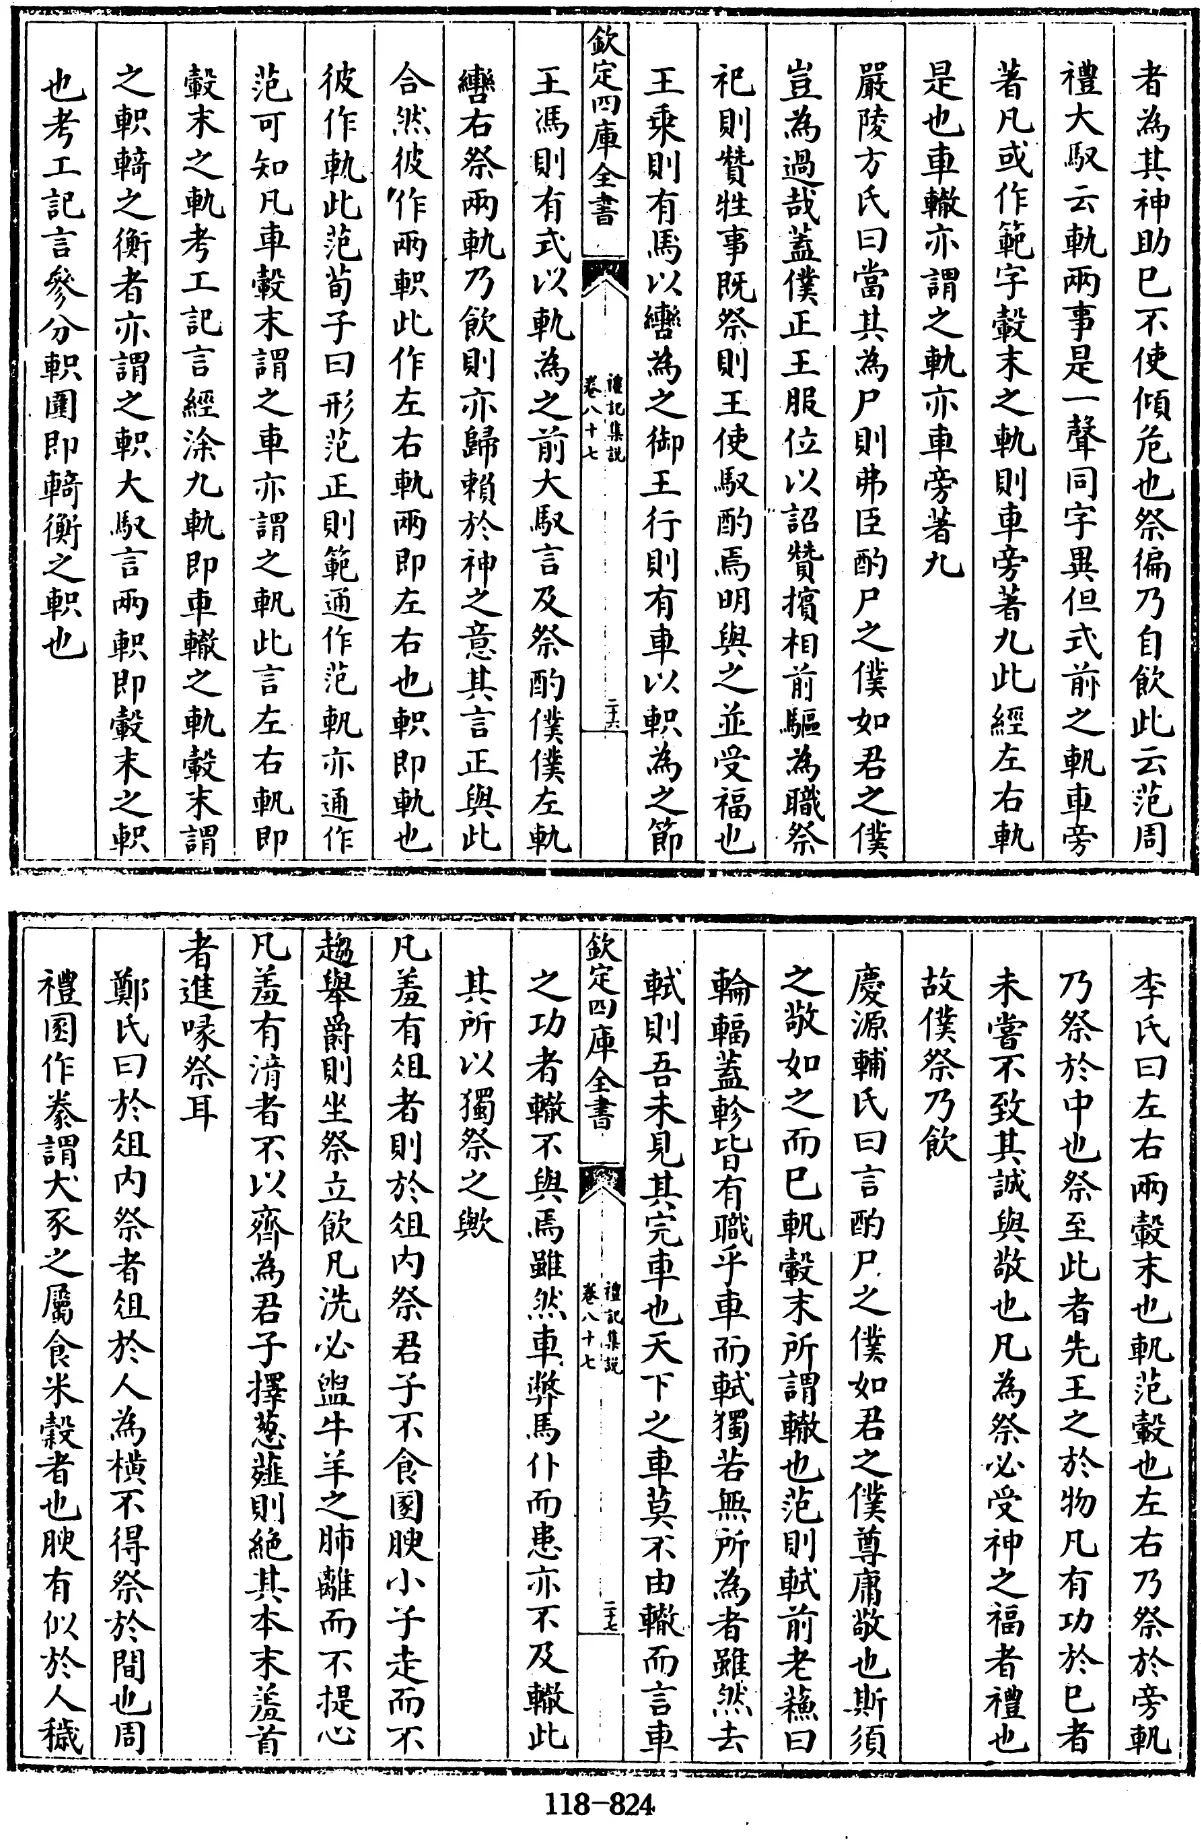 者為其神助已不使傾危也祭徧乃自飲此云范周
禮大馭云軌兩事是一聲同字異但式前之軓車旁
著凡或作範字轂末之軌則車旁著九此經左右軌
是也車轍亦謂之軌亦車旁著九
嚴陵方氏曰當其為尸則弗臣酌尸之僕如君之僕
豈為過哉蓋僕正王服位以詔贊擯相前驅為職祭
祀則贊牲事既祭則王使馭酌焉明與之並受福也
王乗則有馬以轡為之御王行則有車以軹為之節
欽定四庫全書
禮記集説
卷八十七
二十六
王馮則有式以軌為之前大馭言及祭酌僕僕左軌
轡右祭兩軌乃飲則亦歸賴於神之意其言正與此
合然彼作兩軹此作左右軌兩即左右也軹即軌也
彼作軌此范荀子曰形范正則範通作范軓亦通作
范可知凡車轂末謂之車亦謂之軓此言左右軓即
轂末之軌考工記言經涂九軌即車轍之軌轂末謂
之軹輢之衡者亦謂之軹大馭言兩軹即轂末之軹
也考工記言參分軹圍即輢衡之軹也
李氏曰左右兩轂末也軓范轂也左右乃祭於旁軓
乃祭於中也祭至此者先王之於物凡有功於已者
未嘗不致其誠與敬也凡為祭必受神之福者禮也
故僕祭乃飲
慶源輔氏曰言酌尸之僕如君之僕尊庸敬也斯須
之敬如之而已軓轂末所謂轍也范則軾前老蘇曰
輪輻蓋軫皆有職乎車而軾獨若無所為者雖然去
軾則吾未見其完車也天下之車莫不由轍而言車
欽定四庫全書
禮記集説
卷八十七
二十七
之功者轍不與焉雖然車弊馬仆而患亦不及轍此
其所以獨祭之歟
凡羞有俎者則於俎內祭君子不食圂腴小子走而不
趨舉爵則坐祭立飲凡洗必盥牛羊之肺離而不提心
凡羞有湆者不以齊為君子擇葱薤則絶其本末羞首
者進喙祭耳
鄭氏曰於俎內祭者俎於人為橫不得祭於間也周
禮圂作豢謂犬豕之屬食米穀者也腴有似於人穢
118-824